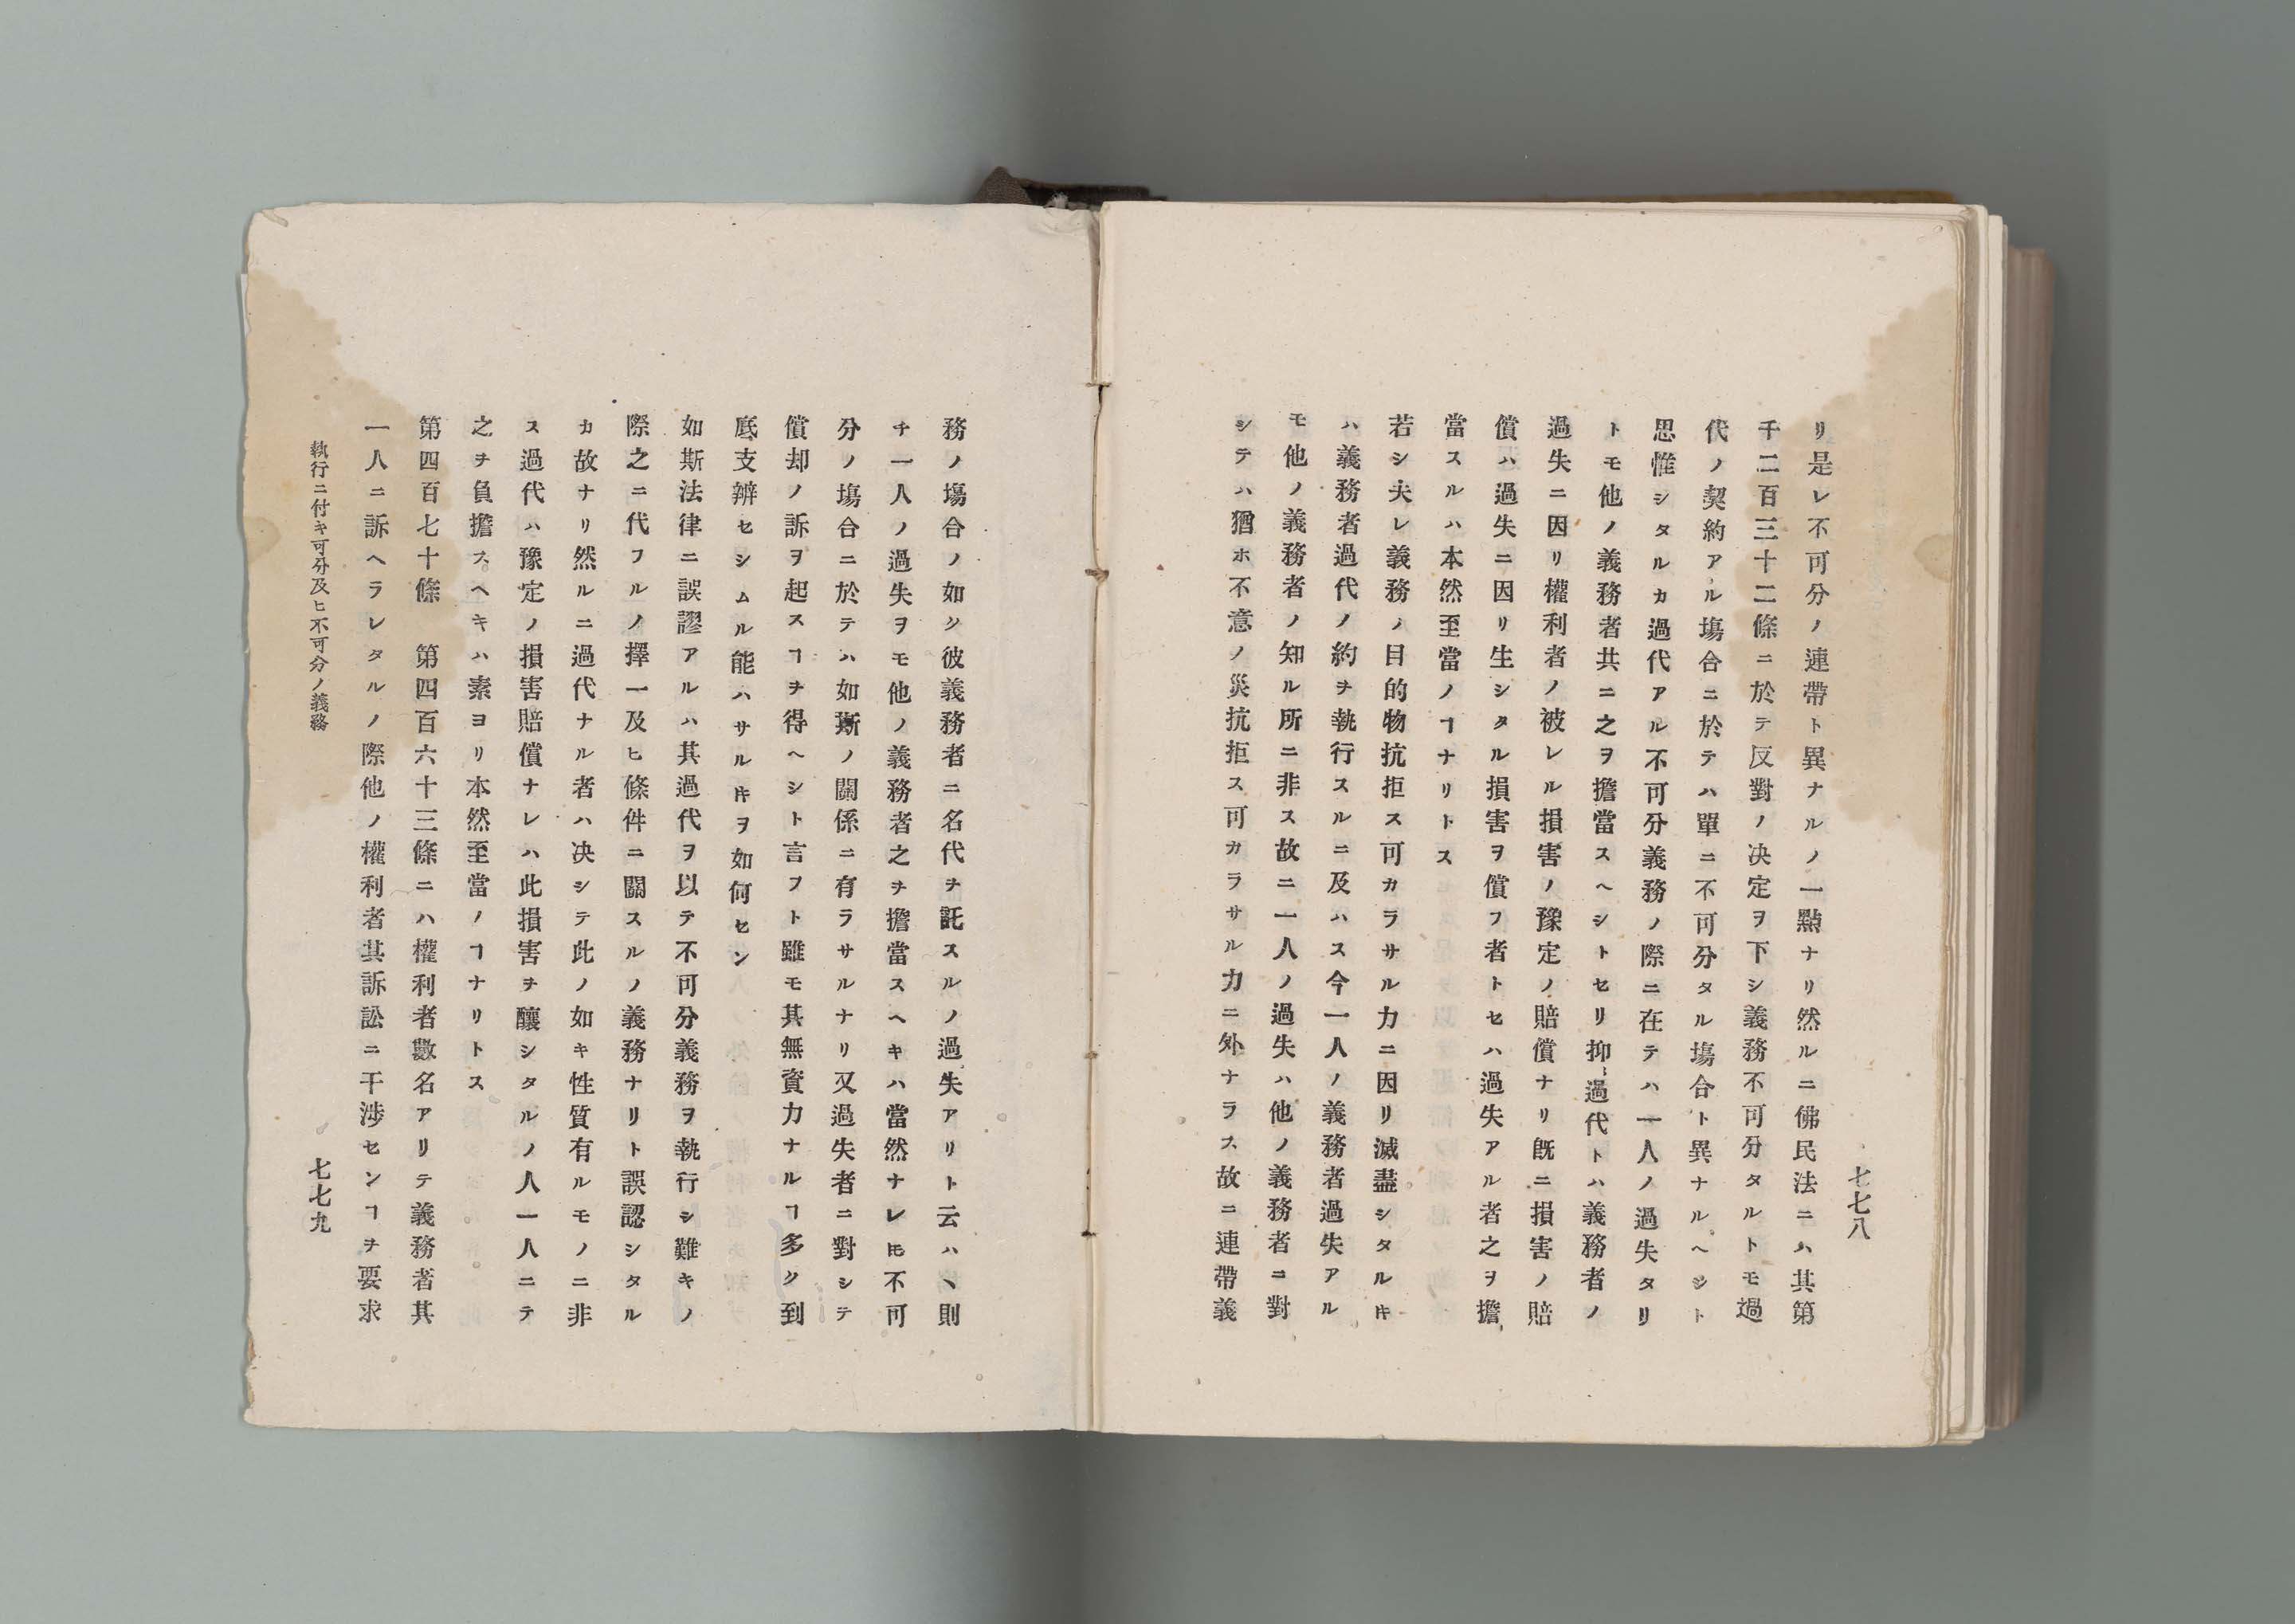 七七八
リ是レ不可分ノ連帶ト異ナルノ一點ナリ然ルニ佛民法ニハ其第
千二百三十二條ニ於テ反對ノ决定ヲ下シ義務不可分タルトモ過
代ノ契約アル塲合ニ於テハ單ニ不可分タル塲合ト異ナルヘシト
思惟シタルカ過代アル不可分義務ノ際ニ在テハ一人ノ過失タリ
トモ他ノ義務者共ニ之ヲ擔當スヘシトセリ抑過代トハ義務者ノ
過失ニ因リ權利者ノ被レル損害ノ豫定ノ賠償ナリ既ニ損害ノ賠
償ハ過失ニ因リ生シタル損害ヲ償フ者トセハ過失アル者之ヲ擔
當スルハ本然至當ノヿナリトス
若シ夫レ義務ノ目的物抗拒ス可カラサル力ニ因リ滅盡シタルキ
ハ義務者過代ノ約ヲ執行スルニ及ハス今一人ノ義務者過失アル
モ他ノ義務者ノ知ル所ニ非ス故ニ一人ノ過失ハ他ノ義務者ニ對
シテハ猶ホ不意ノ災抗拒ス可カラサル力ニ外ナラス故ニ連帶義
務ノ塲合ノ如ク彼義務者ニ名代ヲ託スルノ過失アリト云ハヽ則
チ一人ノ過失ヲモ他ノ義務者之ヲ擔當スヘキハ當然ナレ𪜈不可
分ノ塲合ニ於テハ如斯ノ關係ニ有ラサルナリ又過失者ニ對シテ
償却ノ訴ヲ起スヿヲ得ヘシト言フト雖モ其無資力ナルヿ多ク到
底支辨セシムル能ハサルキヲ如何セン
如斯法律ニ誤謬アルハ其過代ヲ以テ不可分義務ヲ執行シ難キノ
際之ニ代フルノ擇一及ヒ條件ニ關スルノ義務ナリト誤認シタル
カ故ナリ然ルニ過代ナル者ハ决シテ此ノ如キ性質有ルモノニ非
ス過代ハ豫定ノ損害賠償ナレハ此損害ヲ釀シタルノ人一人ニテ
之ヲ負擔スヘキハ素ヨリ本然至當ノヿナリトス
第四百七十條　第四百六十三條ニハ權利者數名アリテ義務者其
一人ニ訴ヘラレタルノ際他ノ權利者其訴訟ニ干涉センヿヲ要求
執行ニ付キ可分及ヒ不可分ノ義務
七七九